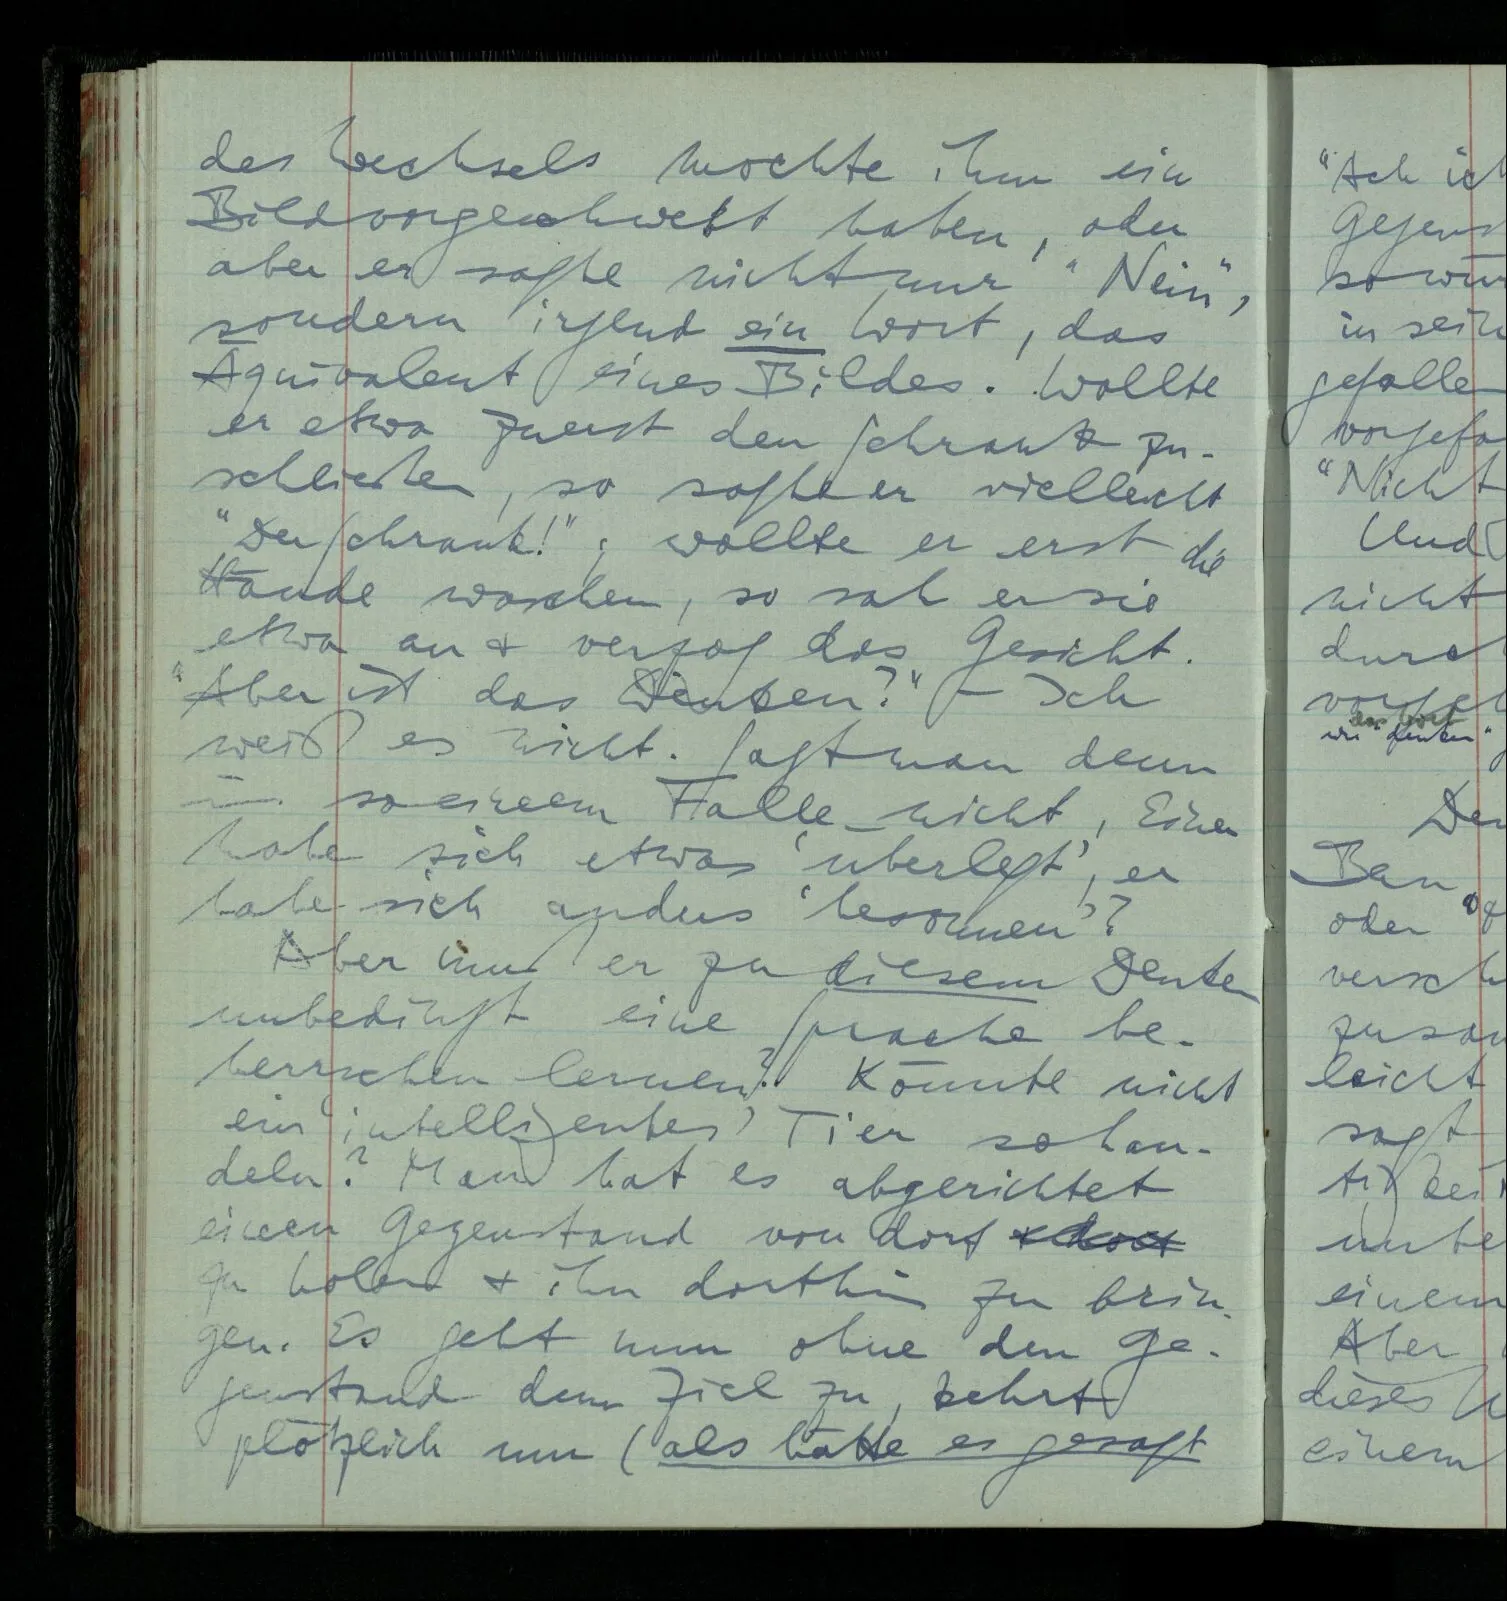 des Wechsels mochte ihm ein
Bild vorgeschwebt haben, oder
aber er sagte nicht nur "Nein",
sondern irgend ein Wort, das
Äquivalent eines Bildes. Wollte
er etwa zuerst den Schrank zu-
schließen, so sagte er vielleicht
"Der Schrank!"; wollte er erst die
Hände waschen, so sah er sie
etwa an & verzog das Gesicht.
"Aber ist das Denken?" – Ich
weiß es nicht. Sagt man denn
in so einem Falle nicht, Einer
habe sich etwas 'überlegt', er
habe sich anders 'besonnen'?
Aber muß er zu diesem Denken
unbedingt eine Sprache be-
herrschen lernen? Könnte nicht
ein 'intelligentes' Tier so han-
deln? Man hat es abgerichtet
einen Gegenstand von dort & dort
zu holen & ihn dorthin zu brin-
gen. Es geht nun ohne den Ge-
genstand dem Ziel zu, kehrt
plötzlich um (als hätte es gesagt
"Ach ich
Gegens
so wür
in sein
gefalle
vorgefa
"Nicht
Und
nicht
durch
das Wort
wie "denken"
Den
Ban
oder
versch
zusam
leicht
sagt
unbe
einem
Aber
dieses
einem